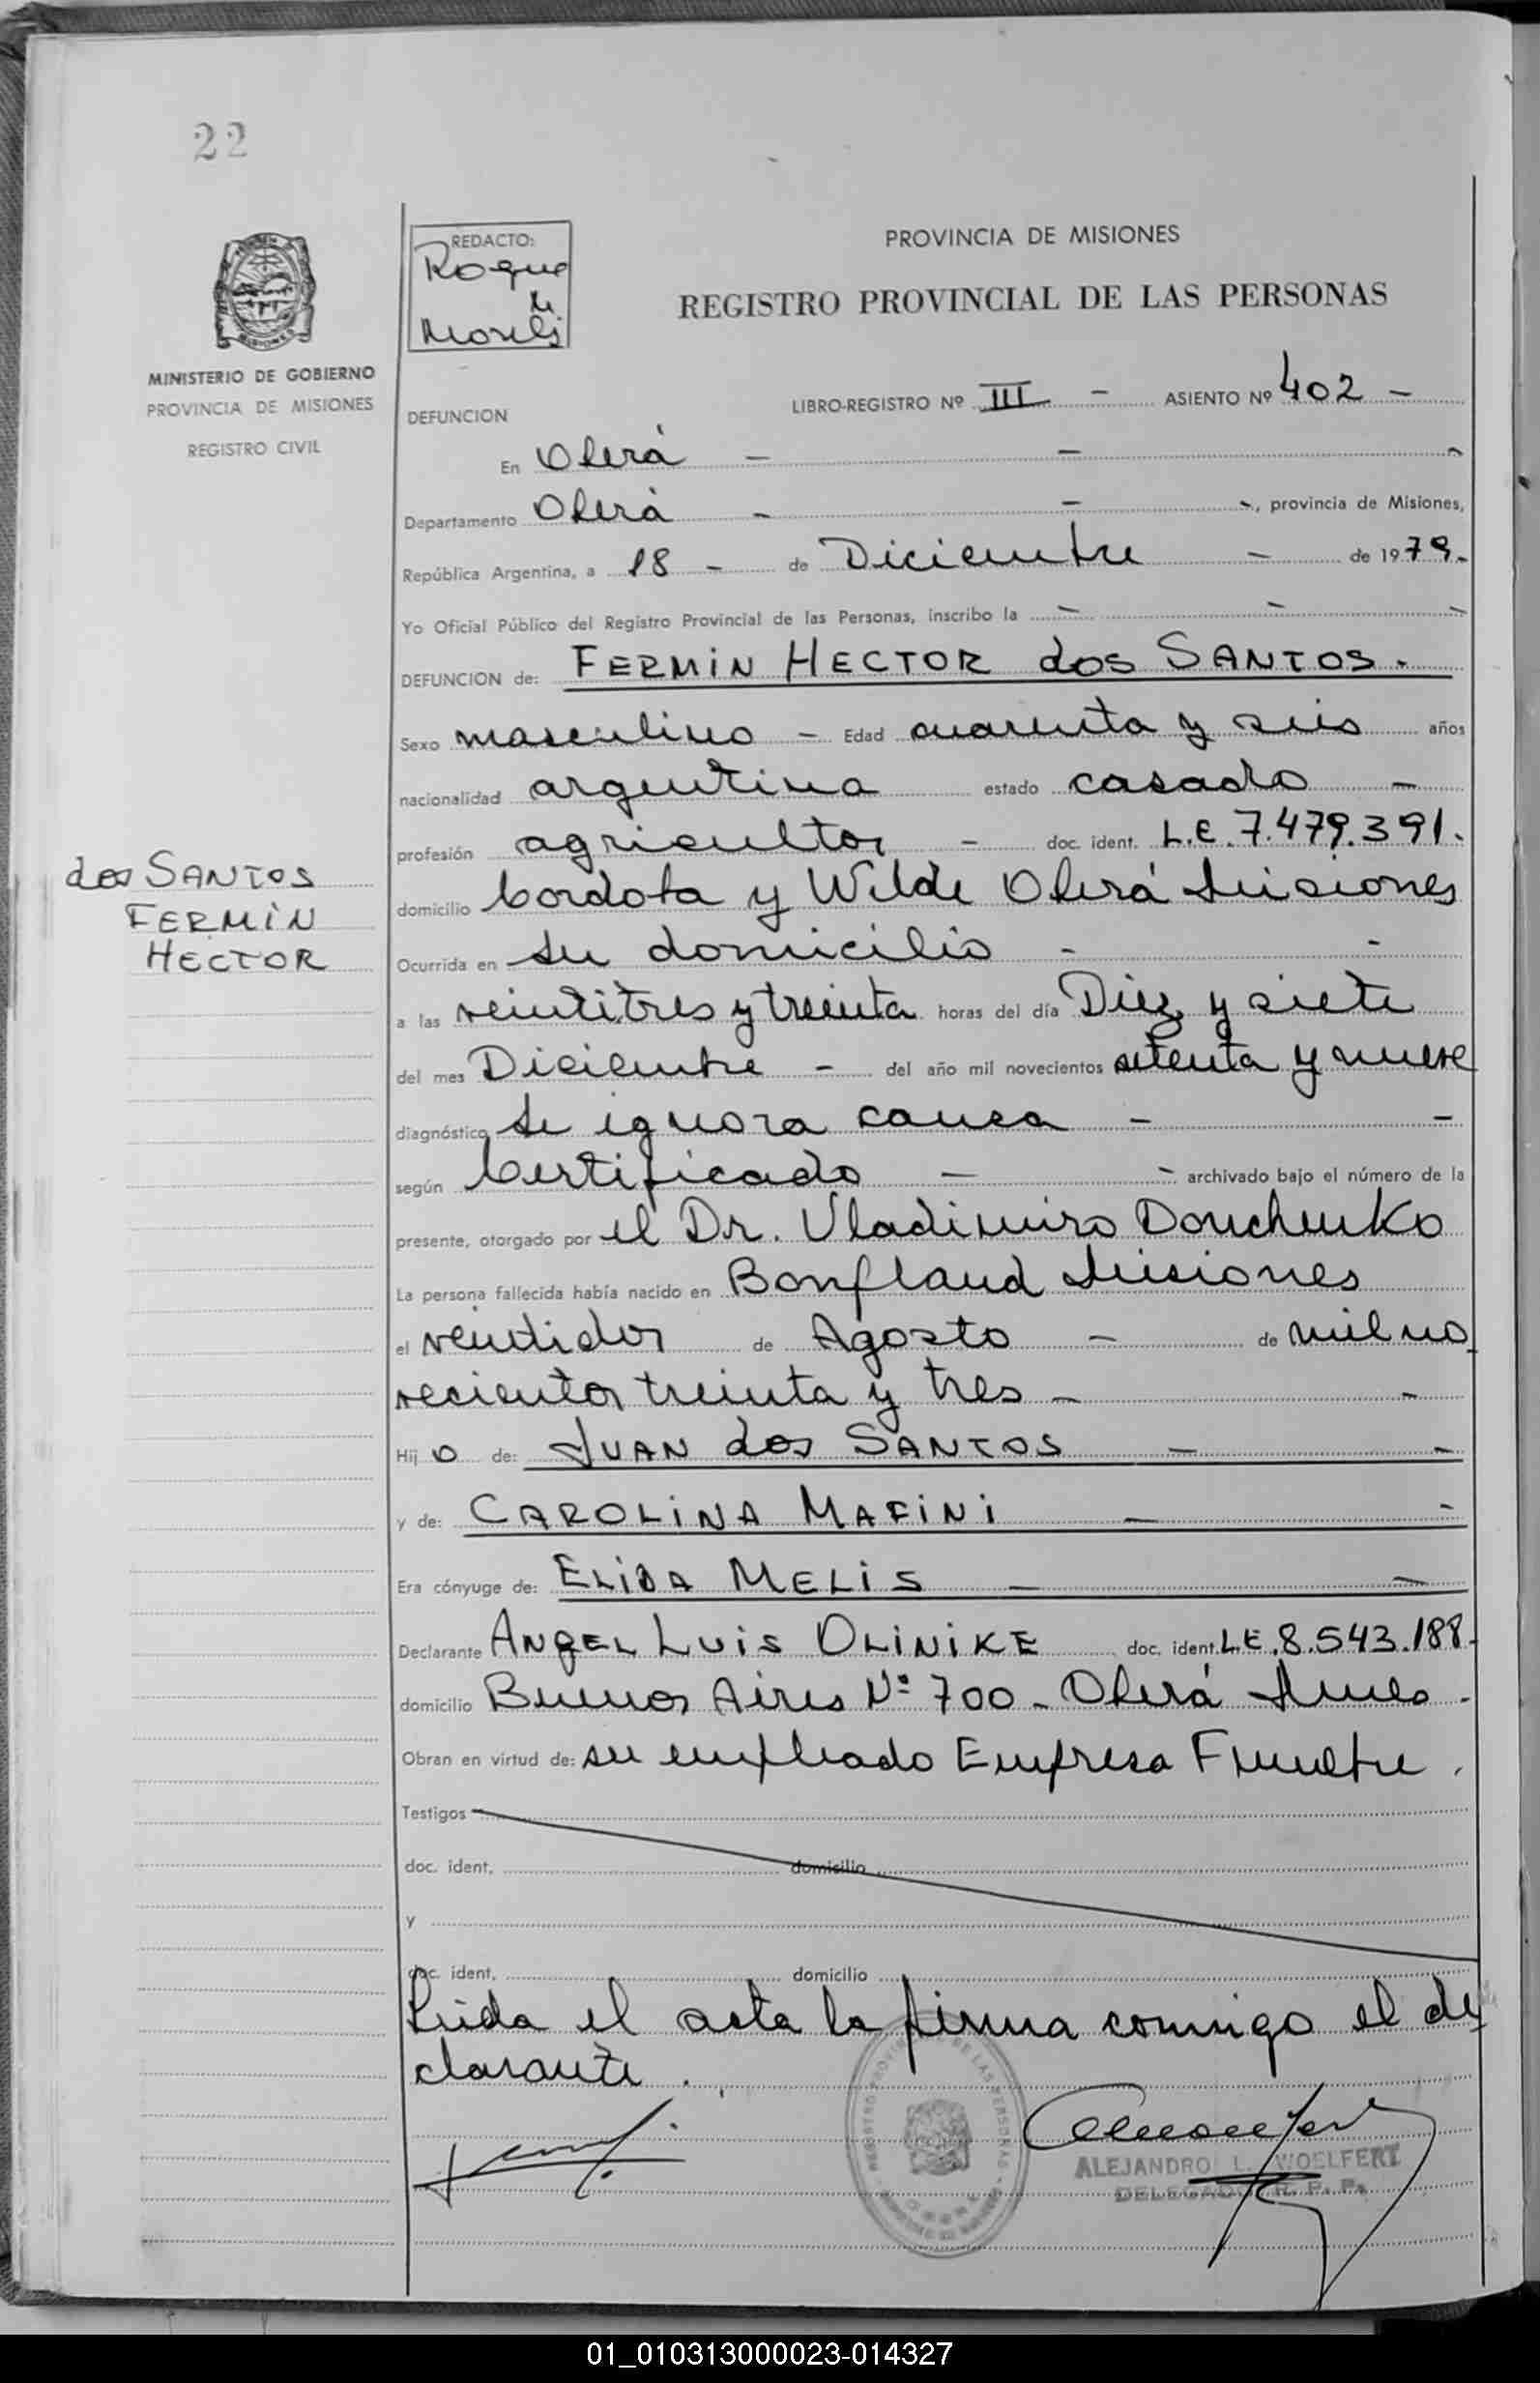 22
REDACTO:
Roque
PROVINCIA DE MISIONES
REGISTRO PROVINCIAL DE LAS PERSONAS
MINISTERIO DE GOBIERNO
PROVINCIA DE MISIONES
REGISTRO CIVIL
LIBRO-REGISTRO Nº III - ASIENTO Nº 402 -
DEFUNCION
En Oberá - - -
Departamento Oberá - - -, provincia de Misiones,
República Argentina, a 18 - de Diciembre - de 1979.-
Yo Oficial Público del Registro Provincial de las Personas, inscribo la - - -
DEFUNCION de: FERMIN HECTOR dos SANTOS.
Sexo masculino - Edad cuarenta y seis años
nacionalidad argentina estado casado -
profesión agricultor - doc. ident. L.E. 7.479.391.
dos SANTOS
FERMIN
HECTOR
domicilio Cordoba y Wilde Oberá Misiones
Ocurrida en su domicilio - -
a las veintitres y treinta horas del día Diez y siete
del mes Diciembre - del año mil novecientos setenta y nueve
diagnóstico se ignora causa - -
según Certificado - - archivado bajo el número de la
presente, otorgado por el Dr. Vladimiro Donchenko
La persona fallecida había nacido en Bonpland Misiones
el veintidos de Agosto - de mil no
vecientos treinta y tres - -
Hij o de: JUAN dos SANTOS - -
y de: CAROLINA MAFINI - -
Era cónyuge de: ELIDA MELIS - -
Declarante ANGEL LUIS OLINIKE doc. ident. L.E. 8.543.188.
domicilio Buenos Aires Nº 700 - Oberá Mnes -
Obran en virtud de: su empleado Empresa Funebre.
Testigos
doc. ident. domicilio
y
doc. ident. domicilio
Leida el acta la firma conmigo el de
clarante.
REGISTRO PROVINCIAL DE LAS PERSONAS
ALEJANDRO L. WOELFERT
DELEGADO R. P. P.
01_010313000023-014327